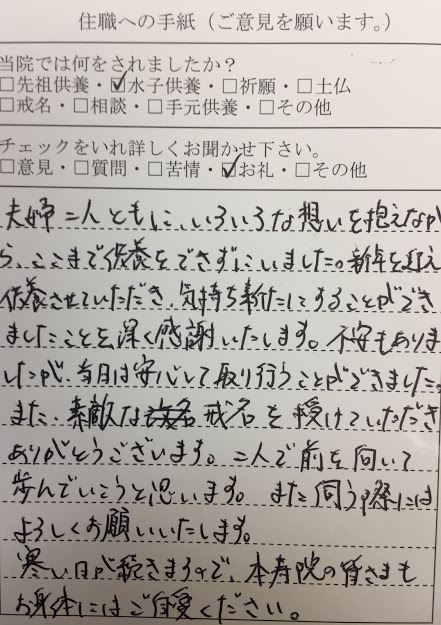 住職への手紙（ご意見を願います。）
当院では何をされましたか？
□先祖供養・☑水子供養・□祈願・□土仏
□戒名・□相談・□手元供養・□その他
チェックをいれ詳しくお聞かせ下さい。
□意見・□質問・□苦情・☑お礼・□その他
夫婦二人ともに、いろいろな想いを抱えなが
ら、ここまで供養をできずにいました。新年を迎え
供養させていただき、気持ち新たにすることができ
ましたことを深く感謝いたします。不安もありま
したが、当日は安心して取り行うことができました。
また、素敵な戒名を授けていただき
ありがとうございます。二人で前を向いて
歩んでいこうと思います。また伺う際には
よろしくお願いいたします。
寒い日が続きますので、本寿院の皆さまも
お身体にはご自愛ください。